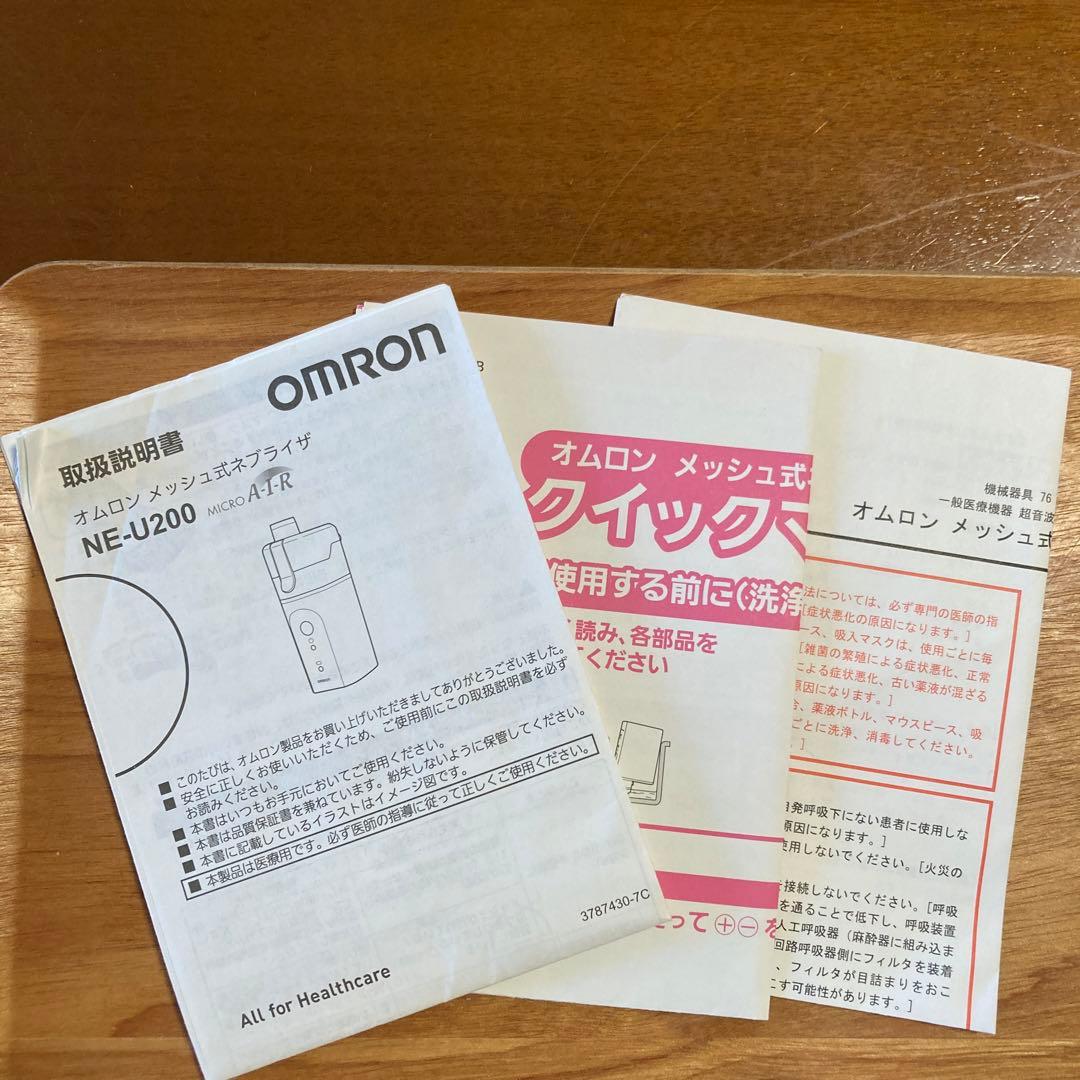 OMRON
取扱説明書
オムロン メッシュ式ネブライザ
NE-U200 MICRO A-I-R
■ このたびは、オムロン製品をお買い上げいただきましてありがとうございました。
■ 安全に正しくお使いいただくため、ご使用前にこの取扱説明書を必ず
お読みください。
■ 本書はいつもお手元においてご使用ください。
■ 本書は品質保証書を兼ねています。紛失しないように保管してください。
■ 本書に記載しているイラストはイメージ図です。
■ 本製品は医療用です。必ず医師の指導に従って正しくご使用ください。
3787430-7C
All for Healthcare
オムロン メッシュ式
クイック
使用する前に(洗浄
読み、各部品を
てください
って⊕⊖を
機械器具 76
一般医療機器 超音波
オムロン メッシュ式
法については、必ず専門の医師の指
[症状悪化の原因になります。]
ース、吸入マスクは、使用ごとに毎
[雑菌の繁殖による症状悪化、正常
による症状悪化、古い薬液が混ざる
原因になります。]
合、薬液ボトル、マウスピース、吸
ごとに洗浄、消毒してください。
。]
自発呼吸下にない患者に使用しな
原因になります。]
使用しないでください。[火災の
接続しないでください。[呼吸
を通ることで低下し、呼吸装置
人工呼吸器(麻酔器に組み込ま
回路呼吸器側にフィルタを装着
、フィルタが目詰まりをおこ
こす可能性があります。]